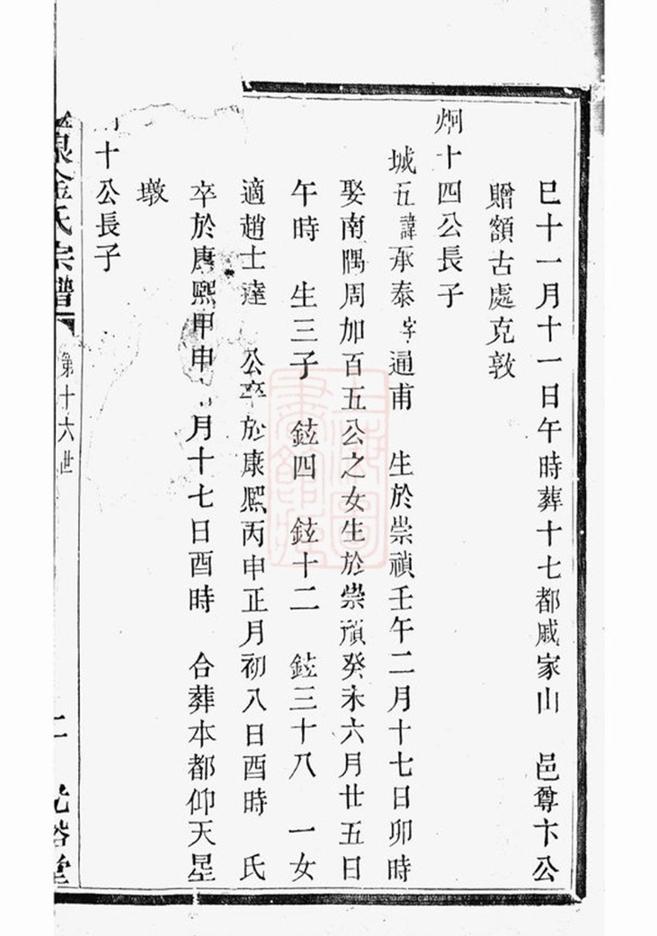 巳十一月十一日午時葬十七都戚家山　邑尊卞公
贈額古處克敦
炯十四公長子
城五諱承泰字通甫　生於崇禎壬午二月十七日卯時
娶南隅周加百五公之女生於崇禎癸未六月廿五日
午時　生三子　鉉四　鉉十二　鉉三十八　一女
適趙士達　公卒於康熙丙申正月初八日酉時　氏
卒於康熙甲申　月十七日酉時　合葬本都仰天星
墩
十公長子
金氏宗譜
第十六世
二
光裕堂